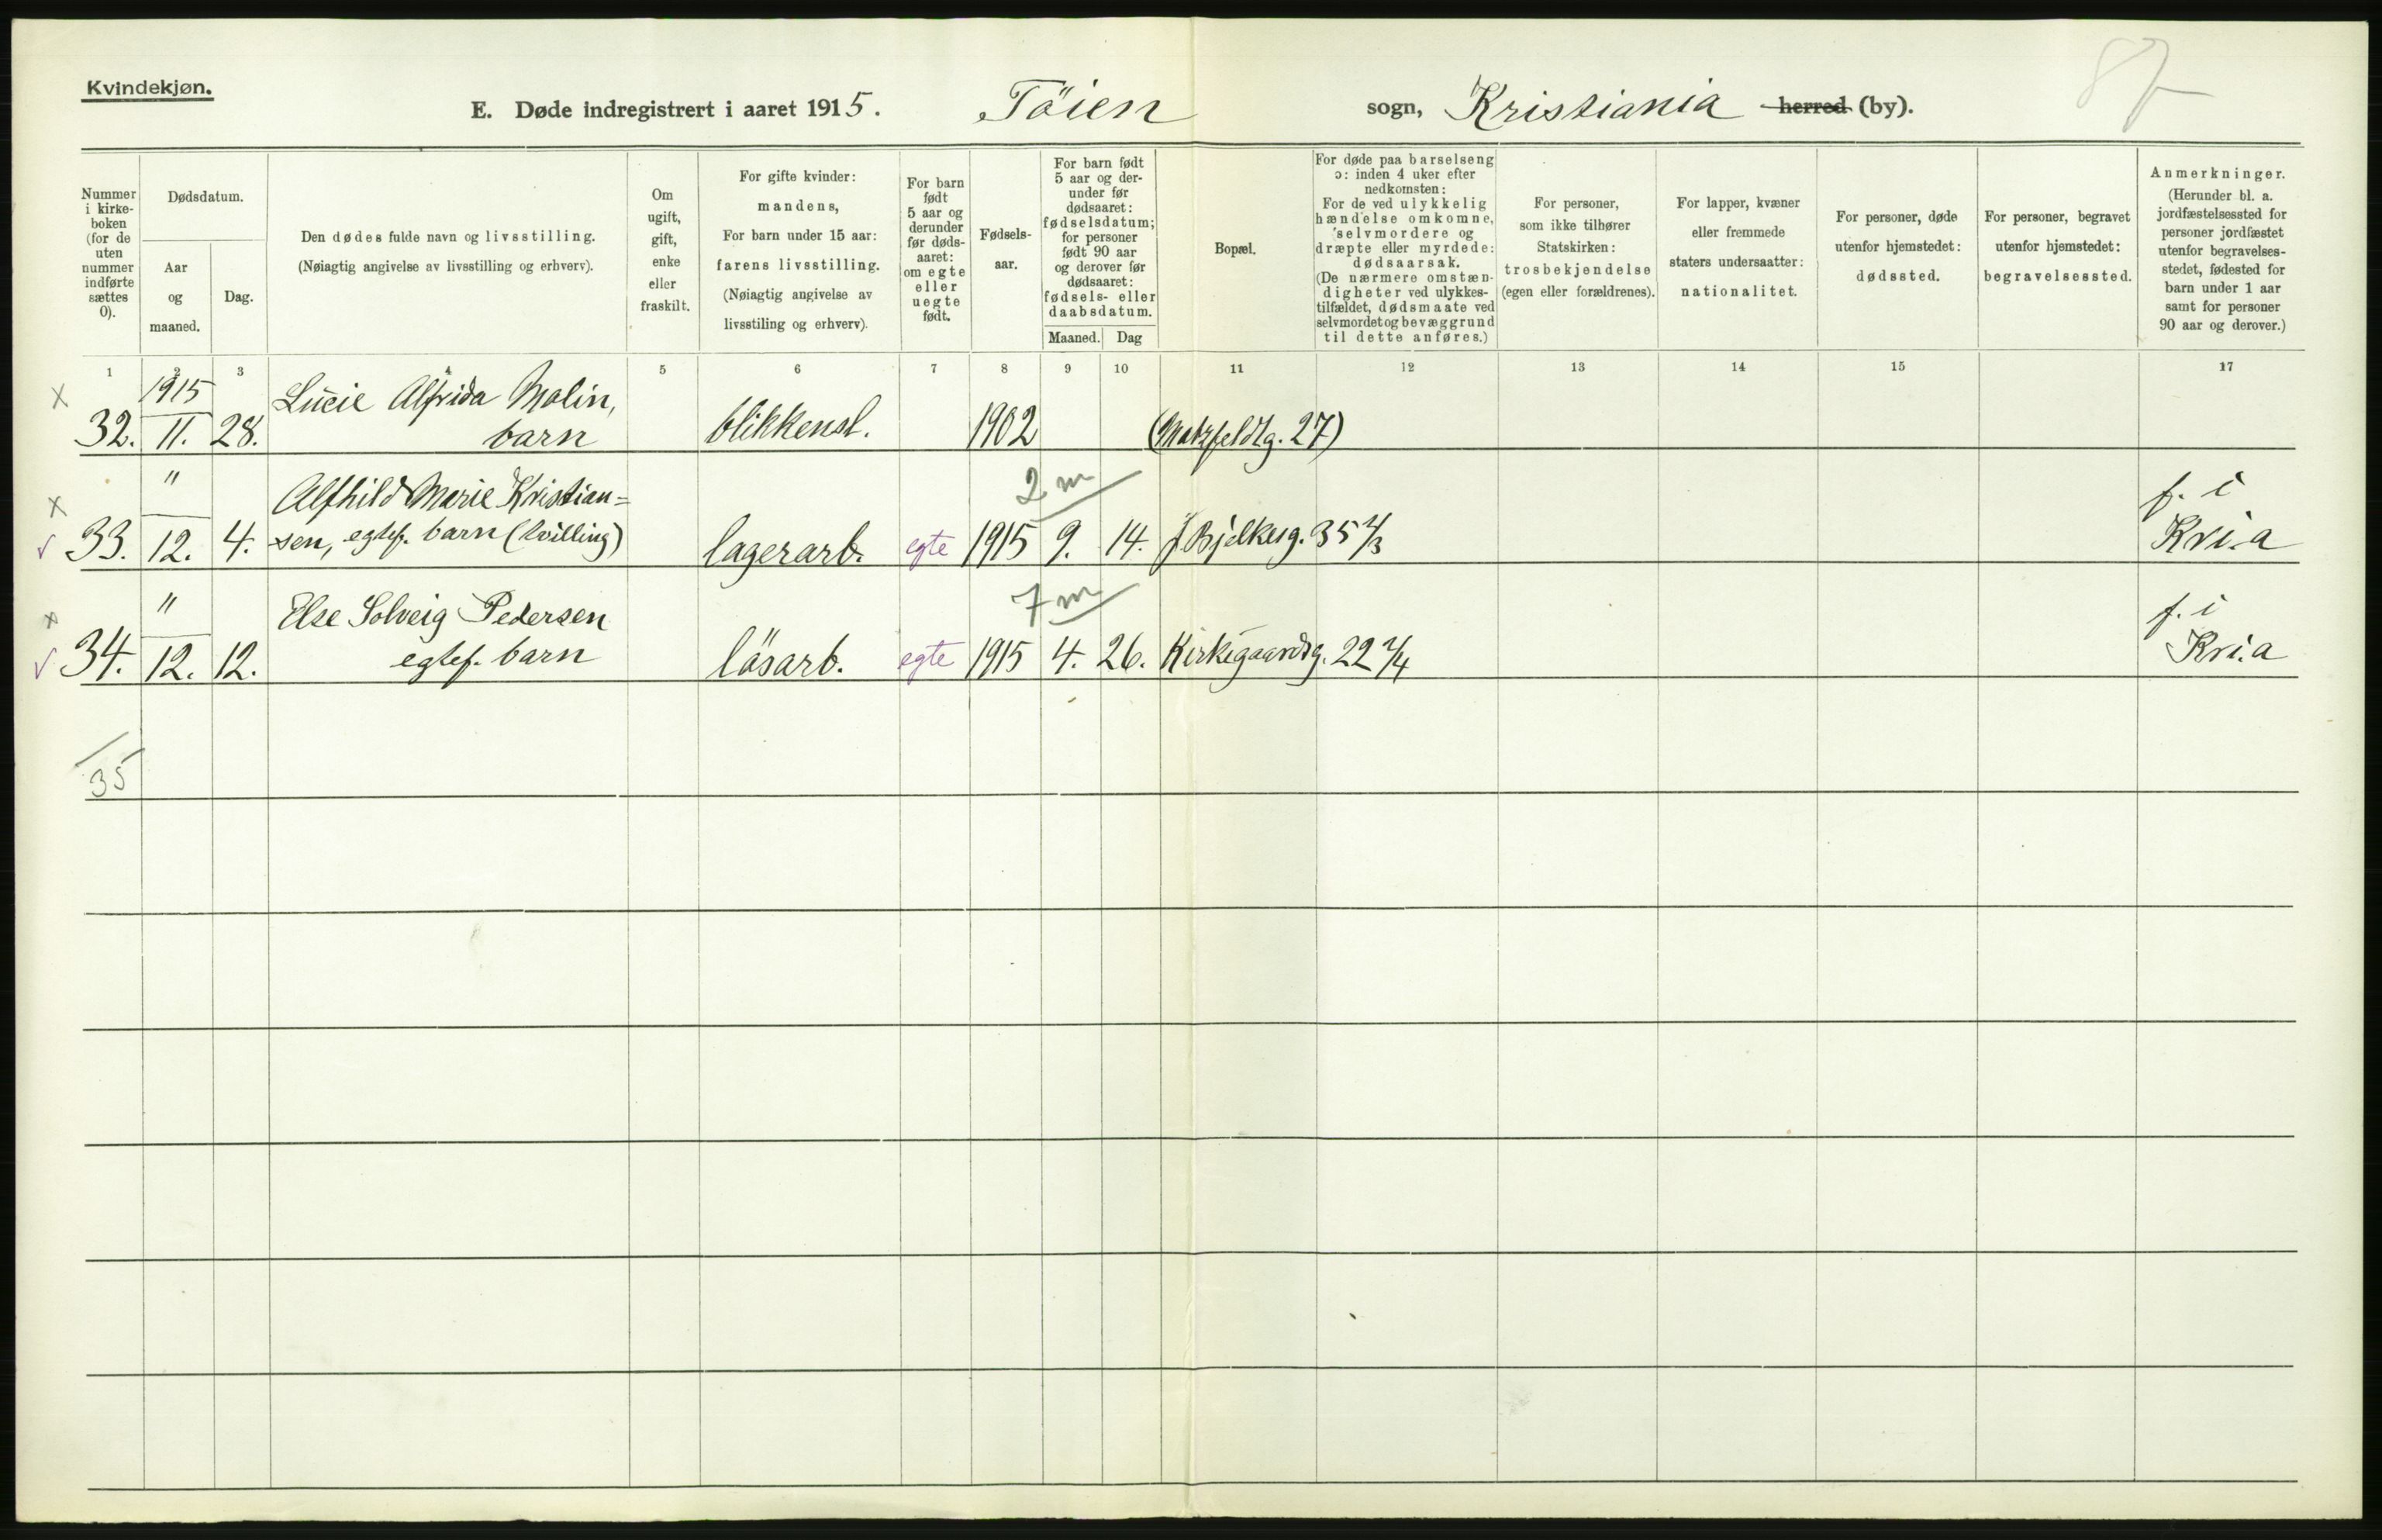 Kvindekjøn.
E. Døde indregistrert i aaret 1915. Töien sogn, Kristiania herred (by).
87
Nummer
i kirke-
boken
(for de
uten
nummer
indførte
sættes
0).
Dødsdatum.
Aar
og
maaned.
Dag.
Den dødes fulde navn og livsstilling.
(Nøiagtig angivelse av livsstilling og erhverv).
Om
ugift,
gift,
enke
eller
fraskilt.
For gifte kvinder:
mandens,
For barn under 15 aar:
farens livsstilling.
(Nøiagtig angivelse av
livsstiling og erhverv).
For barn
født
5 aar og
derunder
før døds-
aaret:
om egte
eller
uegte
født.
Fødsels-
aar.
For barn født
5 aar og der-
under før
dødsaaret:
fødselsdatum;
for personer
født 90 aar
og derover før
dødsaaret:
fødsels- eller
daabsdatum.
Maaned. Dag
Bopæl.
For døde paa barselseng
ɔ: inden 4 uker efter
nedkomsten:
For de ved ulykkelig
hændelse omkomne,
selvmordere og
dræpte eller myrdede:
dødsaarsak.
(De nærmere omstæn-
digheter ved ulykkes-
tilfældet, dødsmaate ved
selvmordet og bevæggrund
til dette anføres.)
For personer,
som ikke tilhører
Statskirken:
trosbekjendelse
(egen eller forældrenes).
For lapper, kvæner
eller fremmede
staters undersaatter:
nationalitet.
For personer, døde
utenfor hjemstedet:
dødssted.
For personer, begravet
utenfor hjemstedet:
begravelsessted.
Anmerkninger.
(Herunder bl. a.
jordfæstelsessted for
personer jordfæstet
utenfor begravelses-
stedet, fødested for
barn under 1 aar
samt for personer
90 aar og derover.)
1 2 3 4 5 6 7 8 9 10 11 12 13 14 15 17
x 1915 Lucie Alfrida Malin,
32. 11. 28. barn blikkensl. 1902 (Motzfeldtg. 27)
x " Alfhild Marie Kristian= 2 m f. i
√ 33. 12. 4. sen, egtef. barn (tvilling) lagerarb. egte 1915 9. 14. J. Bjelkesg. 35 4/3 Kri.a
x " Else Solveig Pedersen 7 m f. i
√ 34. 12. 12. egtef. barn lösarb. egte 1915 4. 26. Kirkegaardsg. 22 4/4 Kri.a
35